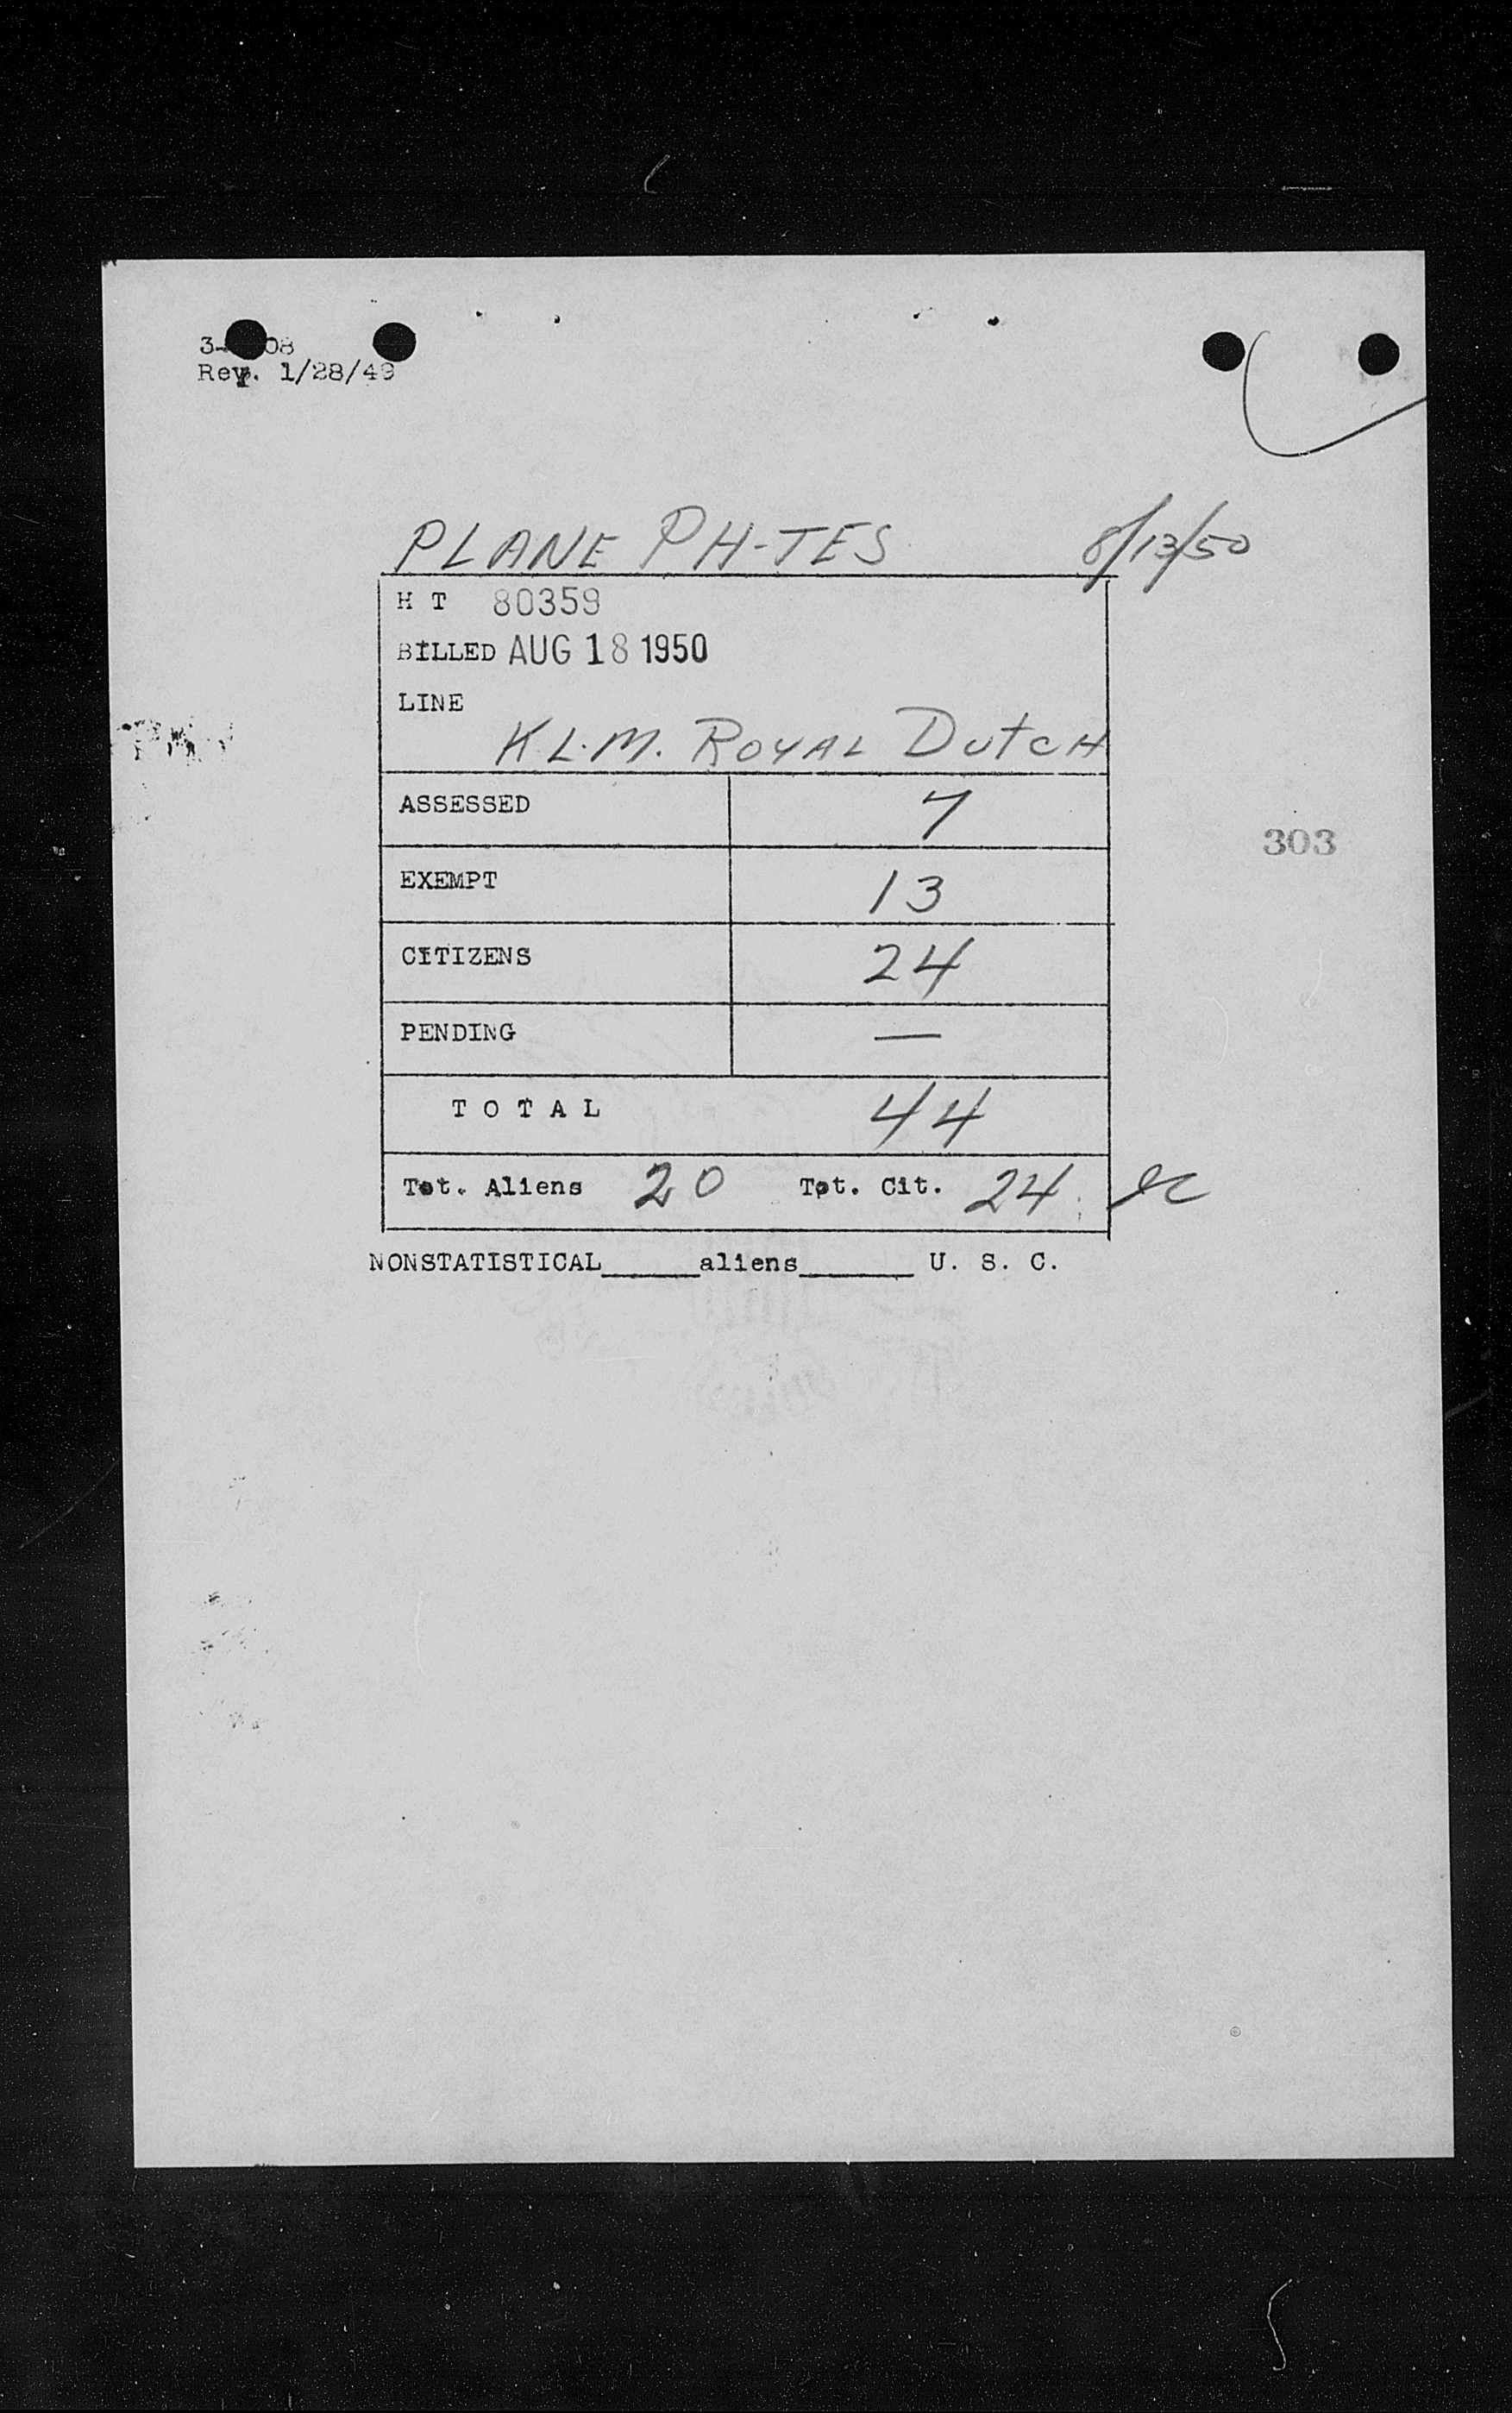 Rev. 1/28/49
PLANE PH-TES 8/13/50
H T 80359
BILLED AUG 18 1950
LINE
K L.M. ROYAL DUTCH
ASSESSED 7
303
EXEMPT 13
CITIZENS 24
PENDING —
T O T A L 44
Tot. Aliens 20 Tot. Cit. 24
NONSTATISTICAL_____aliens______ U. S. C.